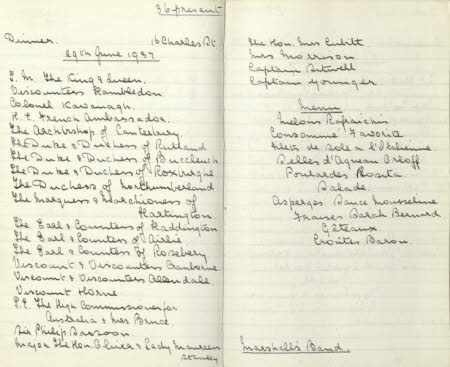 36 present
Dinner. 16 Charles St.
29th June 1937
T. M. The King & Queen.
Viscountess Hambledon
Colonel Kavanagh.
H. E. French Ambassador.
The Archbishop of Canterbury
The Duke & Duchess of Rutland
The Duke & Duchess of Buccleuch
The Duke & Duchess of Roxburghe
The Duchess of Northumberland
The Marquess & Marchioness of
Hartington.
The Earl & Countess of Haddington
The Earl & Countess of Airlie
The Earl & Countess of Rosebery
Viscount & Viscountess Cranborne
Viscount & Viscountess Allendale.
Viscount Horne
H.E. The High Commissioner for
Australia & Mrs Bruce.
Sir Philip Sassoon.
Major The Hon. Oliver & Lady Maureen
Stanley
The Hon. Mrs Cubitt
Mrs Morrison
Captain Sitwell
Captain Younger.
Menu
Melons Rafraichis
Consommé Favorite
Filets de Sole à l'Italienne.
Selles d'Agneau Orloff
Poulardes Rosita
Salade
Asperges Sauce Mousseline
Fraises Sarah Bernard
Gâteaux
Croûtes Baron.
Marshall's Band.